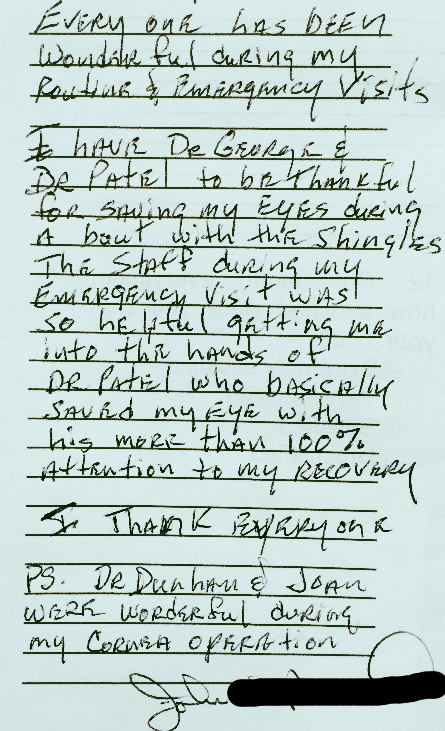 EVERY ONE HAS BEEN
WONDERFUL during my
ROUTINE & EMERGENCY VISITS
I HAVE DR GEORGE &
DR PATEL to be thankful
for saving my EYES during
A bout with the Shingles
The Staff during my
EMERGENCY VISIT WAS
SO helpful getting me
into the hands of
DR PATEL who basically
SAVED my EYE with
his MORE than 100%
Attention to my RECOVERY
I THANK EVERYONE
PS. DR DUNHAM & JOAN
WERE WONDERFUL during
my CORNEA OPERATION
John